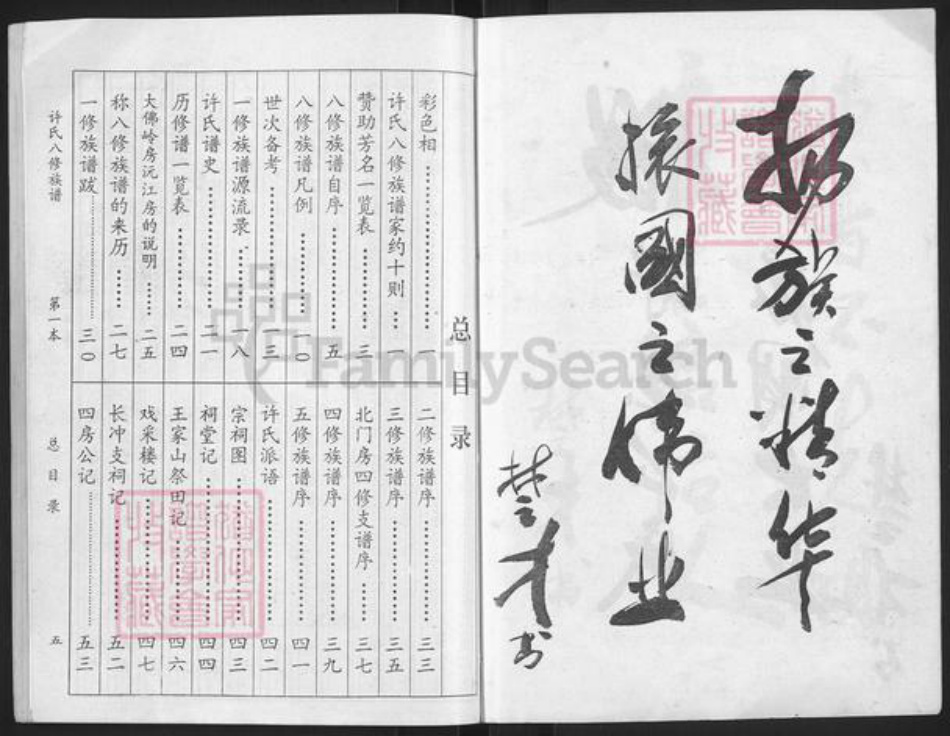 扬族之精华
振國之偉业
楚才书
总目录
彩色相……一
许氏八修族谱家约十则…一
赞助芳名一览表……三
八修族谱自序……五
八修族谱凡例……一〇
世次备考……一三
一修族谱源流录……一八
许氏谱史……二一
历修谱一览表……二四
大佛岭房沅江房的说明……二五
称八修族谱的来历……二七
一修族谱跋……三〇
二修族谱序……三三
三修族谱序……三五
北门房四修支谱序……三七
四修族谱序……三九
五修族谱序……四一
许氏派语……四二
宗祠图……四三
祠堂记……四四
王家山祭田记……四六
戏采楼记……四七
长冲支祠记……五二
四房公记……五三
许氏八修族谱
第一本
总目录
五
FamilySearch